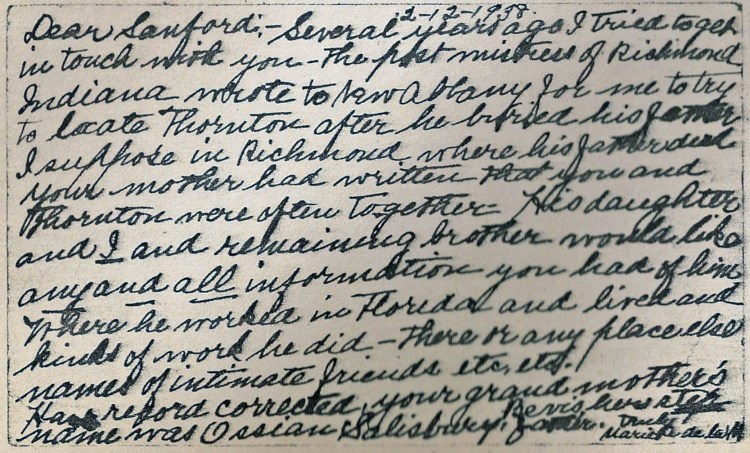 2-12-1958.
Dear Sanford:- Several years ago I tried to get
in touch with you - the post mistress of Richmond
Indiana wrote to New Albany for me to try
to locate Thornton after he buried his father
I suppose in Richmond where his father died
your mother had written that you and
Thornton were often together - His daughter
and I and remaining brother would like
any and all information you had of him
Where he worked in Florida and lived and
kinds of work he did - there or any place else
names of intimate friends etc. etc.
Have record corrected, your grand mother's
name was Ossian Salisbury. Bevis, her step
father. Truly